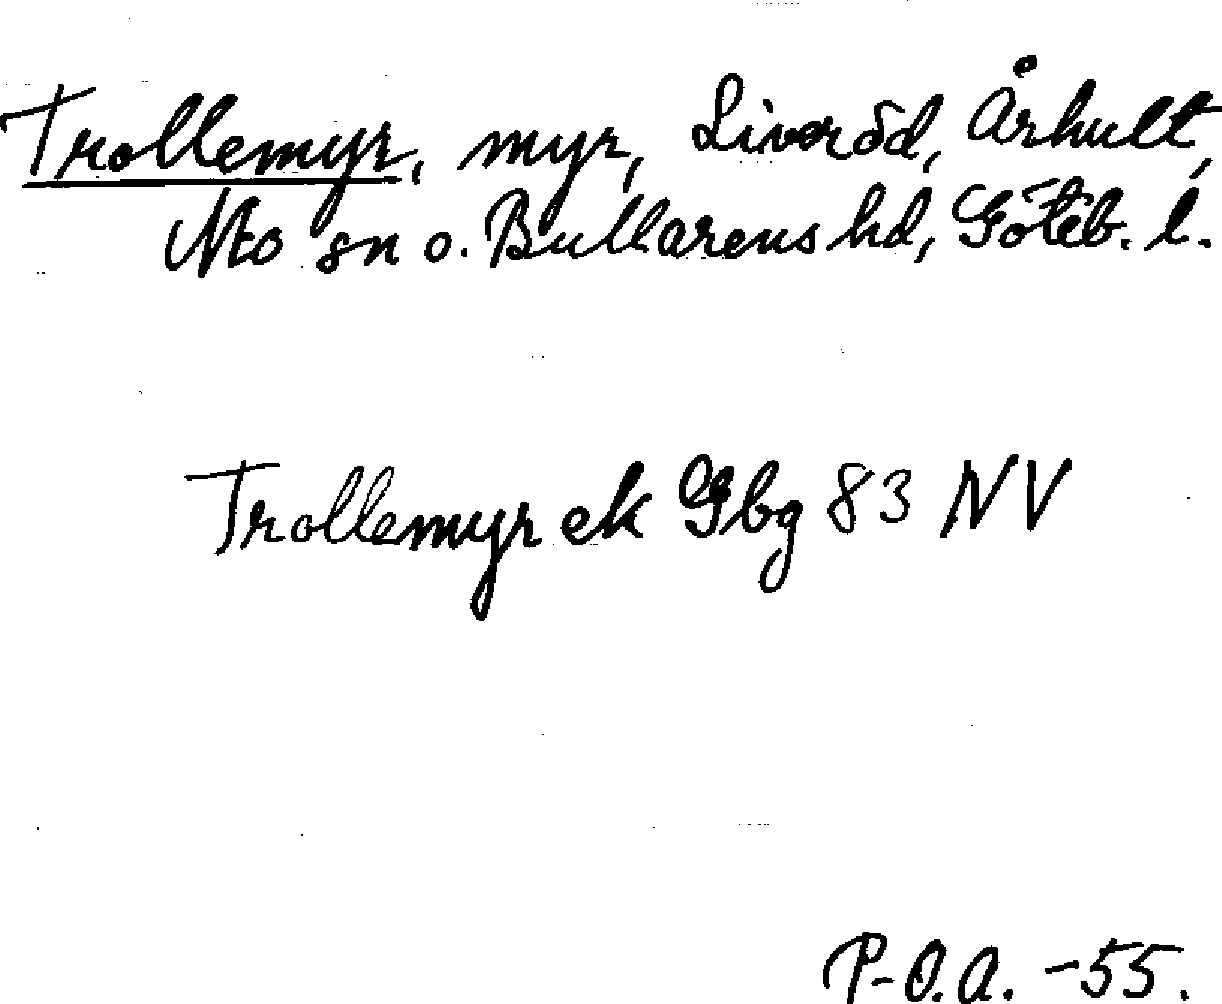 Trollemyr, myr, Liveröd, Århult,
Mo sn o. Bullarens hd, Göteb. l.
Trollemyr ek Gbg 83 NV
P-O.A. -55.